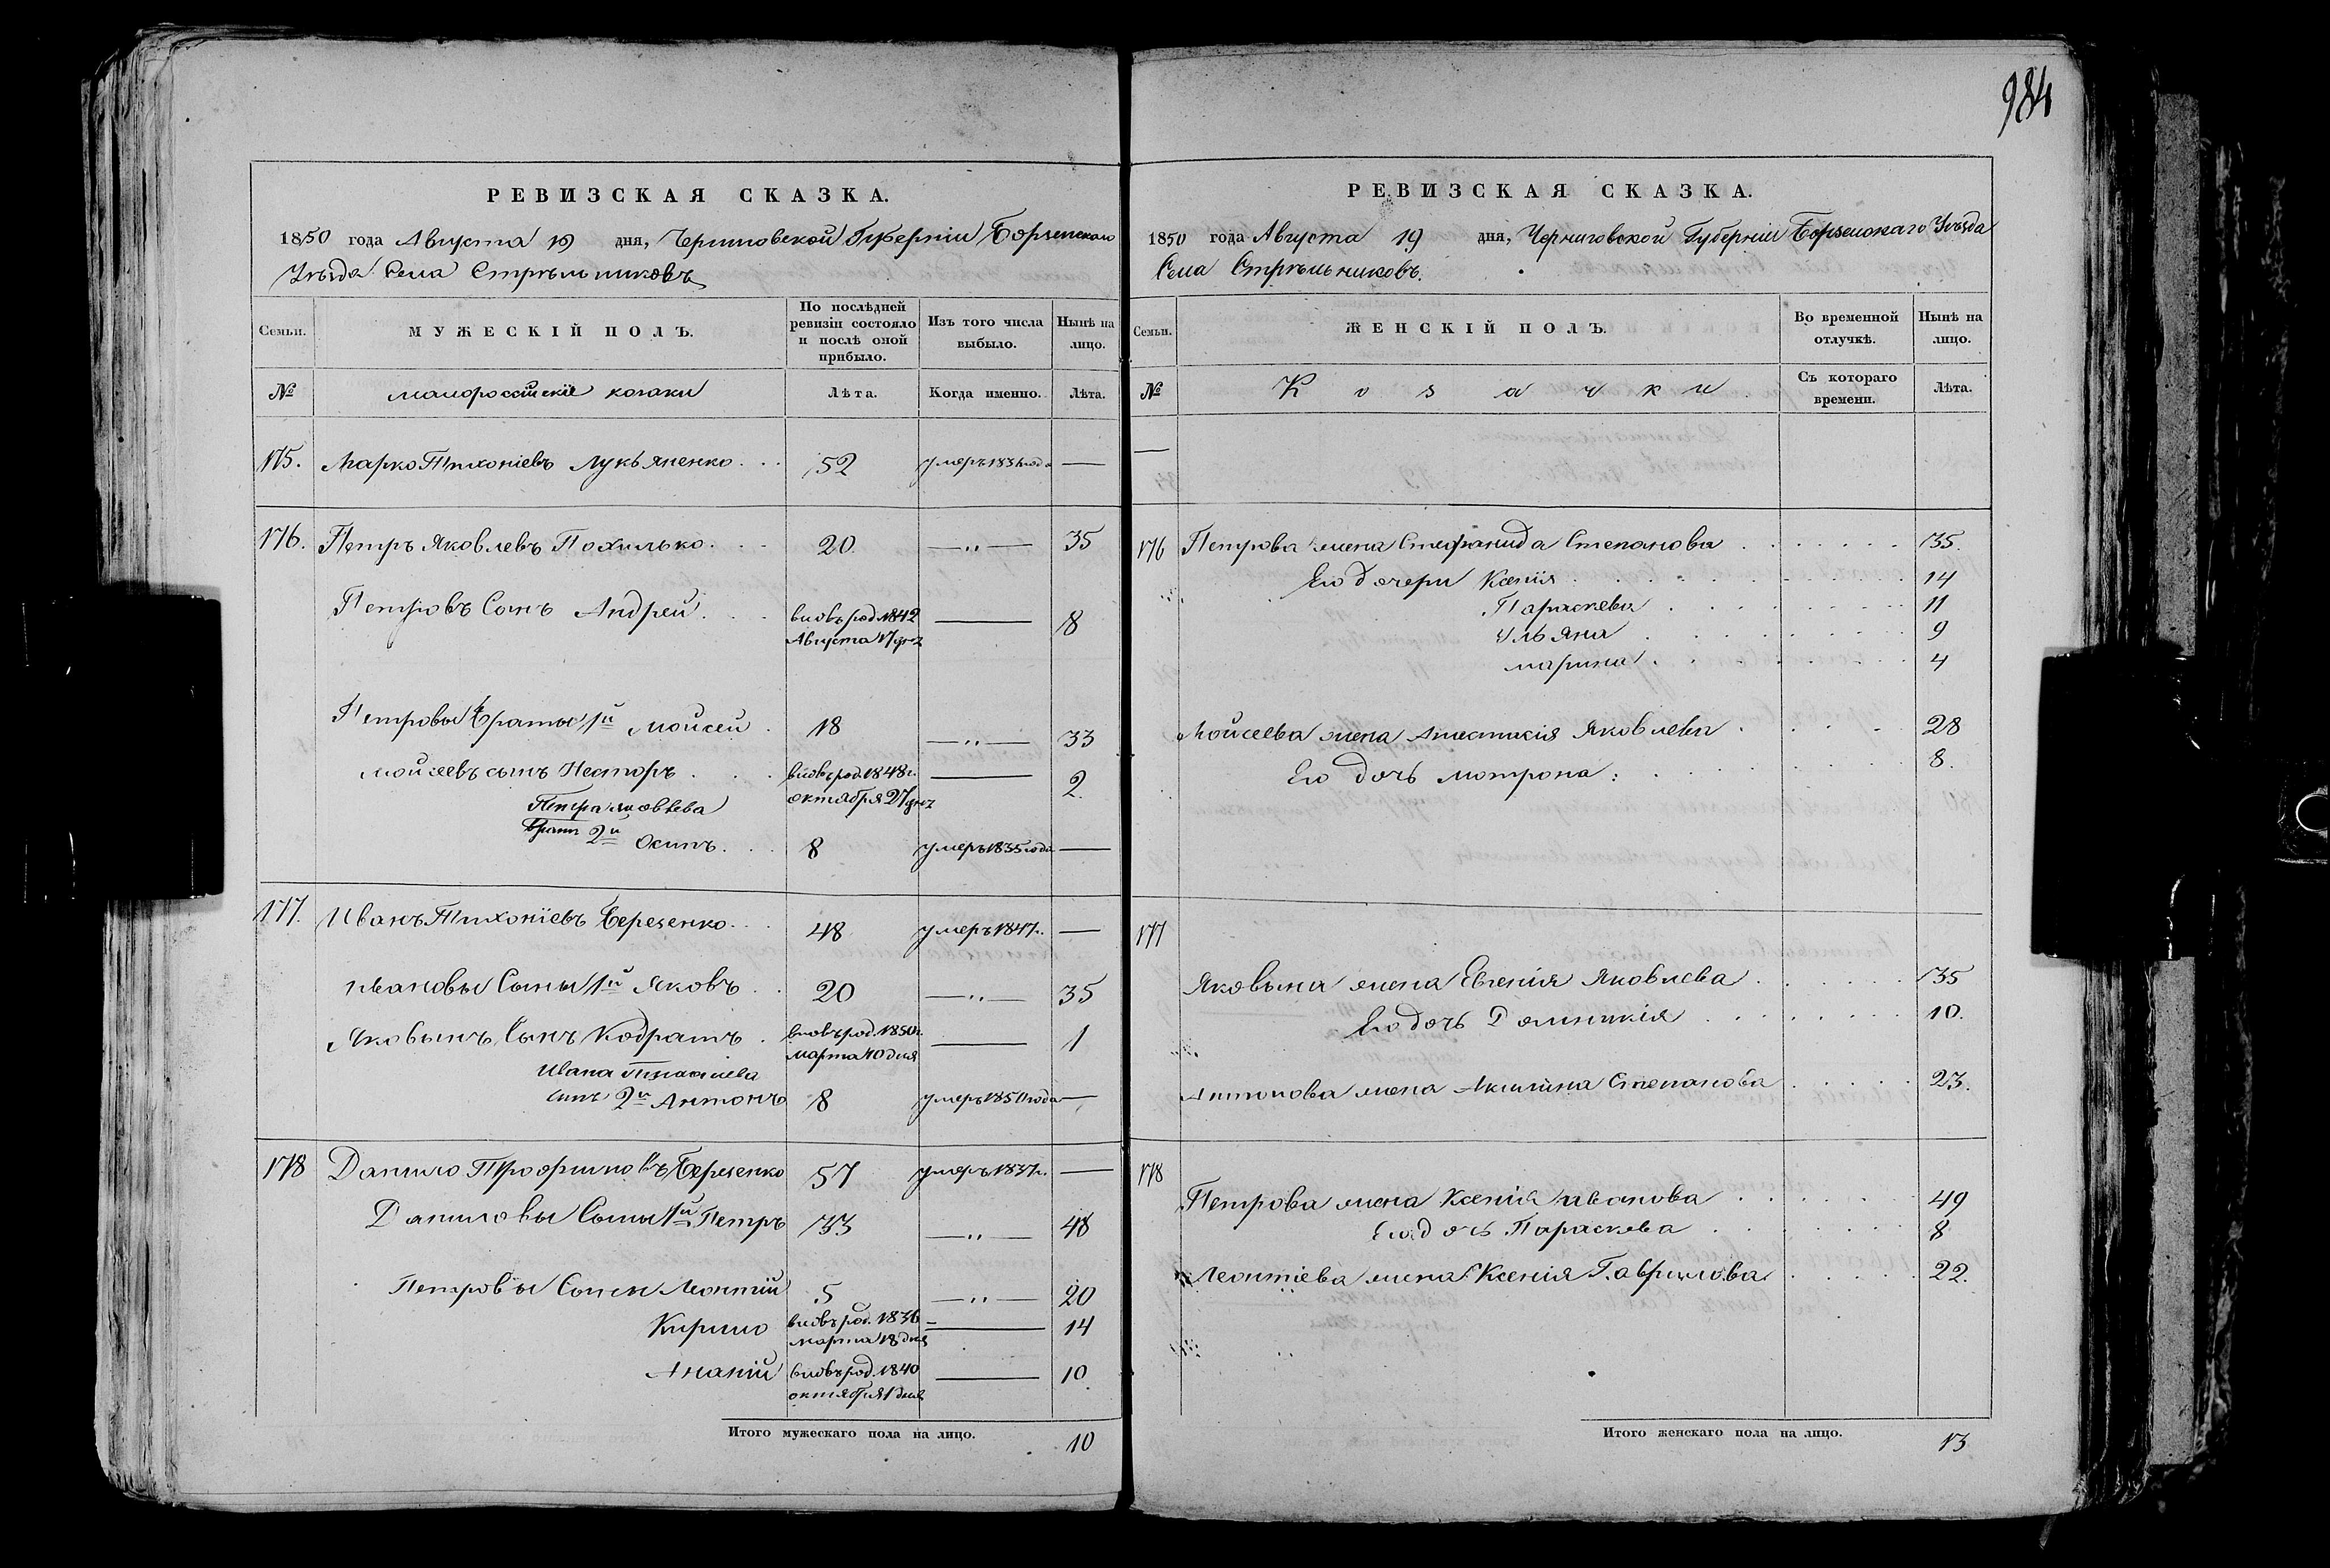 984
РЕВИЗСКАЯ СКАЗКА.
1850 года Августа 19 дня, Черниговской Губерніи Борзенскаго
Уѣзда Села Стрѣльниковъ
Семьи.
МУЖЕСКІЙ ПОЛЪ.
По послѣдней ревизіи состояло и послѣ оной прибыло.
Изъ того числа выбыло.
Нынѣ на лицо.
№
малороссійскіе козаки
Лѣта.
Когда именно.
Лѣта.
175. Марко Тихоніевъ Лукьяненко 52 умеръ 183 года —
176. Петръ Яковлевъ Похилько 20 — „ — 35
Петровъ Сынъ Андрей вновь род. 1842 Августа 17 дня — 8
Петровы братья 1й Мойсей 18 — „ — 33
Мойсеевъ сынъ Несторъ вновь род. 1848 г. октября 27 дня — 2
Петра Яковлева
братъ 2й Осипъ 8 умеръ 1835 года —
177. Иванъ Тихоніевъ Березенко 48 умеръ 1847 г. —
Ивановы Сыны 1й Яковъ 20 — „ — 35
Яковынъ Сынъ Кодратъ вновь род. 1850 г. марта 10 дня — 1
Ивана Тихоніева
сынъ 2й Антонъ 8 умеръ 1850 года —
178 Данило Трофимовъ Березенко 57 умеръ 1837 г. —
Даниловы Сыны 1й Петръ 33 — „ — 48
Петровы Сыны Леонтій 5 — „ — 20
Кирило вновь род. 1836 марта 18 дня — 14
Ананій вновь род. 1840 октября 1 дня — 10
Итого мужескаго пола на лицо. 10
РЕВИЗСКАЯ СКАЗКА.
1850 года Августа 19 дня, Черниговской Губерніи Борзенскаго Уѣзда
Села Стрѣльниковъ.
Семьи.
ЖЕНСКІЙ ПОЛЪ.
Во временной отлучкѣ.
Нынѣ на лицо.
№
Козачки
Съ котораго времени.
Лѣта.
—
176 Петрова жена Стефанида Степанова 35.
Его дочери Ксенія 14
Параскева 11
Ульяна 9
Марина 4
Мойсеева жена Анастасія Яковлева 28
Его дочь Мотрона 8.
177
Яковына жена Евгенія Яковлева 35
Его дочь Домникія 10.
Антонова жена Акилина Степанова 23.
178
Петрова жена Ксенія Иванова 49
Его дочь Параскева 8
Леонтіева жена Ксенія Гаврилова 22.
Итого женскаго пола на лицо. 13